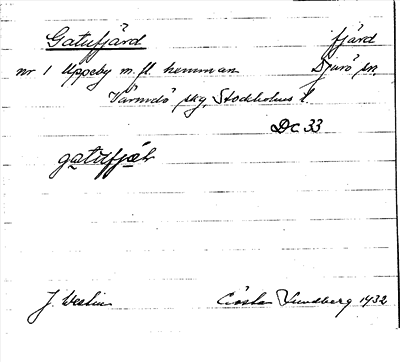 Gatufjärd fjärd
nr 1 Uppeby m.fl. hemman Djurö sn.
Värmdö skg, Stockholms l.
Dc 33
gatufjäḷ
J. Westin Gösta Lundberg 1932